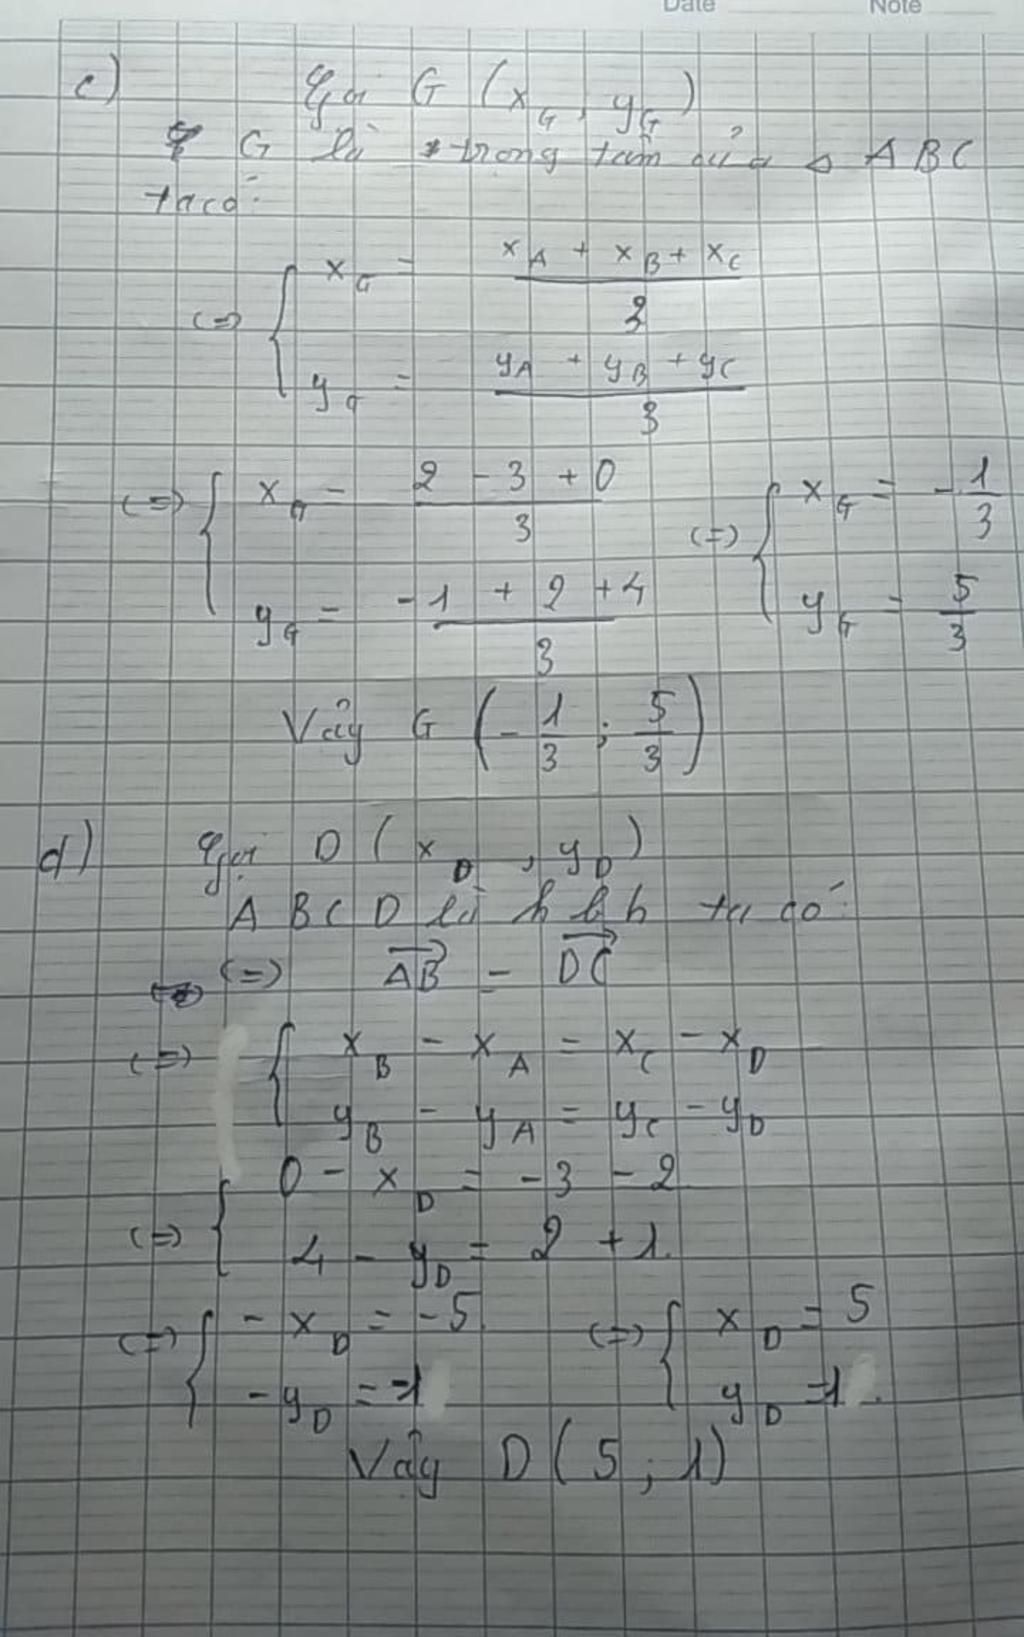 Date Note
c) Gọi G (x_G, y_G)
G là trong tâm của △ ABC
ta có:
(=) { x_G = (x_A + x_B + x_C)/3
y_G = (y_A + y_B + y_C)/3
(=) { x_G = (2 - 3 + 0)/3 (=) { x_G = -1/3
y_G = (-1 + 2 + 4)/3 y_G = 5/3
Vậy G (-1/3 ; 5/3)
d) Gọi D (x_D, y_D)
ABCD là hbh ta có:
(=) \overrightarrow{AB} = \overrightarrow{DC}
(=) { x_B - x_A = x_C - x_D
y_B - y_A = y_C - y_D
(=) { 0 - x_D = -3 - 2
4 - y_D = 2 + 1.
(=) { - x_D = -5 (=) { x_D = 5
- y_D = -1 y_D = 1
Vậy D (5 ; 1)